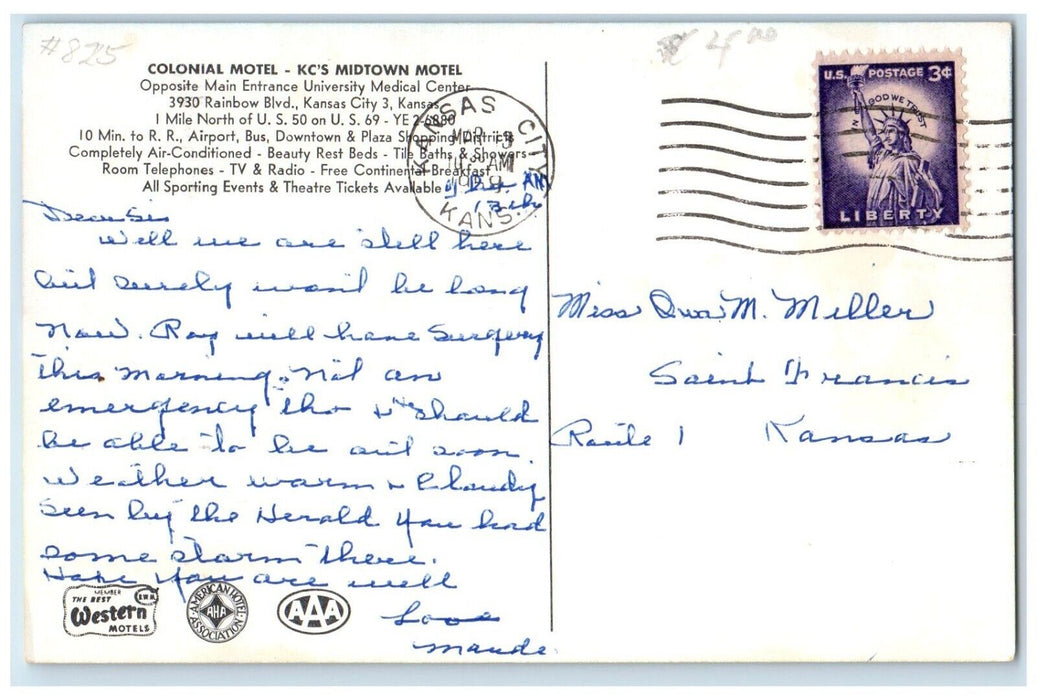 #825
4.00
COLONIAL MOTEL - KC'S MIDTOWN MOTEL
Opposite Main Entrance University Medical Center
3930 Rainbow Blvd., Kansas City 3, Kansas
1 Mile North of U. S. 50 on U. S. 69 - YE 2-6880
10 Min. to R. R., Airport, Bus, Downtown & Plaza Shopping Districts
Completely Air-Conditioned - Beauty Rest Beds - Tile Baths & Showers
Room Telephones - TV & Radio - Free Continental Breakfast
All Sporting Events & Theatre Tickets Available
KANSAS CITY
MAR 13
AM
KANS.
U.S. POSTAGE 3¢
IN GOD WE TRUST
LIBERTY
AM
13th
Dear Sis
Well we are still here
but surely wont be long
now. Ray will have surgery
this morning. Not an
emergency tho & he should
be able to be out soon.
Weather warm & Cloudy
Seen by the Herald you had
some storm there.
Hope you are well
Love
Maude.
Miss M. Miller
Saint Francis
Route 1 Kansas
MEMBER
THE BEST
Western
MOTELS
AMERICAN HOTEL ASSOCIATION
AHA
AAA